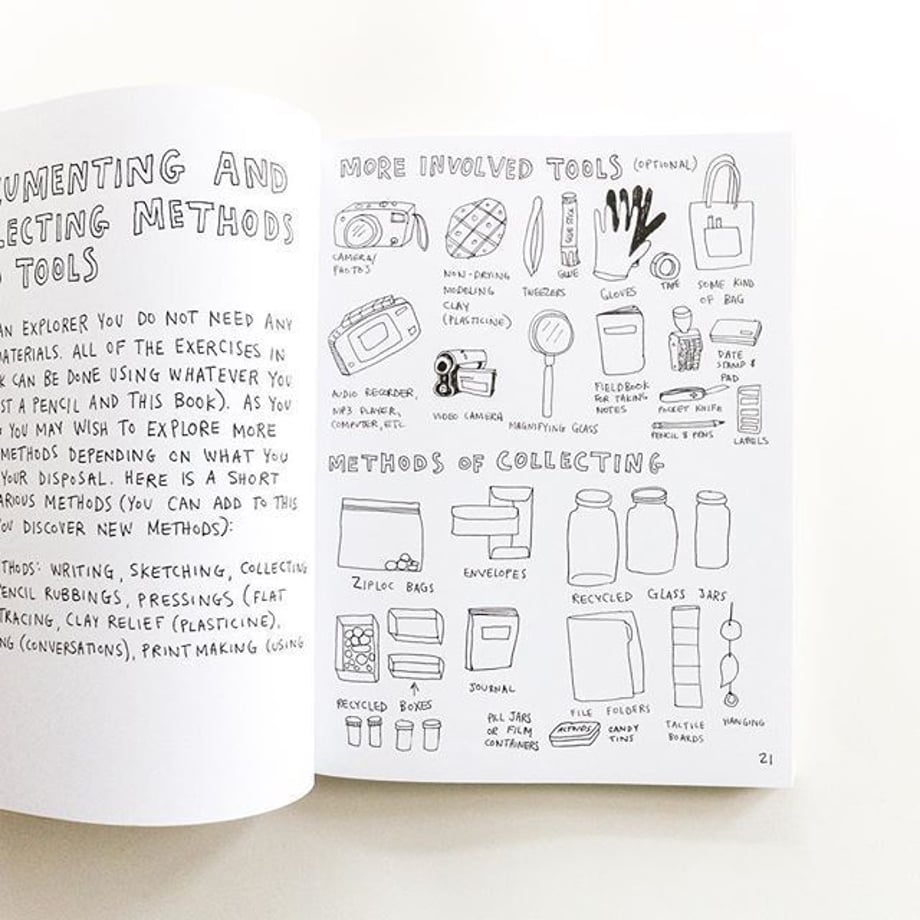 CUMENTING AND
LECTING METHODS
TOOLS
AN EXPLORER YOU DO NOT NEED ANY
MATERIALS. ALL OF THE EXERCISES IN
K CAN BE DONE USING WHATEVER YOU
ST A PENCIL AND THIS BOOK). AS YOU
YOU MAY WISH TO EXPLORE MORE
METHODS DEPENDING ON WHAT YOU
YOUR DISPOSAL. HERE IS A SHORT
ARIOUS METHODS (YOU CAN ADD TO THIS
YOU DISCOVER NEW METHODS):
THODS: WRITING, SKETCHING, COLLECTING
PENCIL RUBBINGS, PRESSINGS (FLAT
TRACING, CLAY RELIEF (PLASTICINE),
NG (CONVERSATIONS), PRINT MAKING (USING
MORE INVOLVED TOOLS (OPTIONAL)
CAMERA/
PHOTOS
NON-DRYING
MODELING
CLAY
(PLASTICINE)
TWEEZERS
GLUE STICK
GLUE
GLOVES
TAPE
SOME KIND
OF BAG
AUDIO RECORDER,
MP3 PLAYER,
COMPUTER, ETC.
VIDEO CAMERA
MAGNIFYING GLASS
FIELDBOOK
FOR TAKING
NOTES
DATE
STAMP &
PAD
POCKET KNIFE
PENCIL & PENS
LABELS
METHODS OF COLLECTING
ZIPLOC BAGS
ENVELOPES
RECYCLED GLASS JARS
RECYCLED BOXES
JOURNAL
FILE FOLDERS
TACTILE
BOARDS
HANGING
PILL JARS
OR FILM
CONTAINERS
ALTOIDS
CANDY
TINS
21